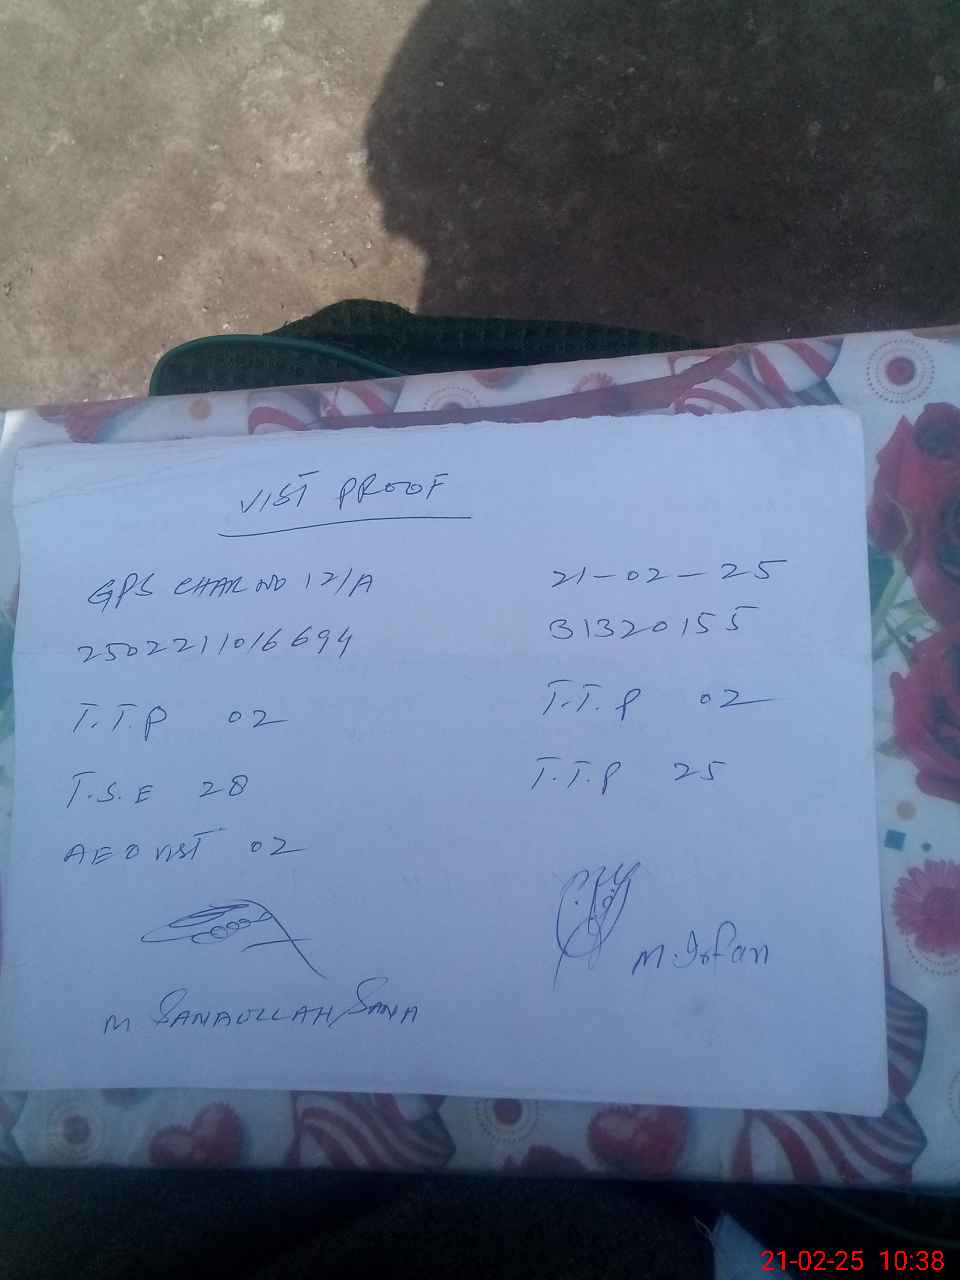 VIST PROOF
GPS CHAK NO 121/A 21-02-25
2502211016694 31320155
T.T.P 02 T.T.P 02
T.S.E 28 T.T.P 25
AEO VIST 02
M. Irfan
M SANAULLAH SANA
21-02-25 10:38